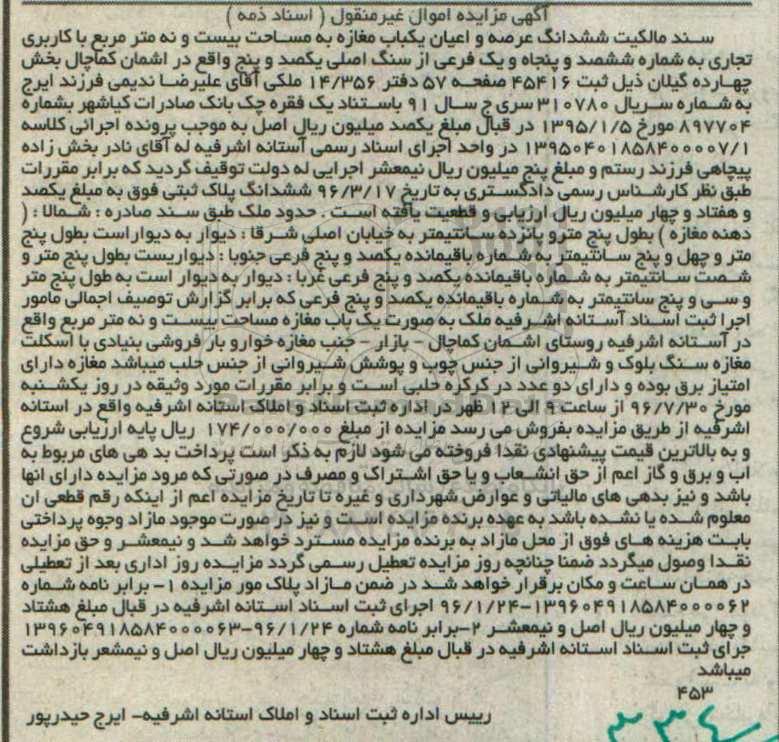 آگهی مزایده اموال غیرمنقول ( اسناد ذمه )
سند مالکیت ششدانگ عرصه و اعیان یکباب مغازه به مساحت بیست و نه متر مربع با کاربری
تجاری به شماره ششصد و پنجاه و یک فرعی از سنگ اصلی یکصد و پنج واقع در اشمان کماچال بخش
چهارده گیلان ذیل ثبت ۴۵۴۱۶ صفحه ۵۷ دفتر ۱۴/۳۵۶ ملکی آقای علیرضا ندیمی فرزند ایرج
به شماره سریال ۳۱۰۷۸۰ سری ج سال ۹۱ باستناد یک فقره چک بانک صادرات کیاشهر بشماره
۸۹۷۷۰۴ مورخ ۱۳۹۵/۱/۵ در قبال مبلغ یکصد میلیون ریال اصل به موجب پرونده اجرائی کلاسه
۱۳۹۵۰۴۰۱۸۵۸۴۰۰۰۰۰۷/۱ در واحد اجرای اسناد رسمی آستانه اشرفیه له آقای نادر بخش زاده
پیچاهی فرزند رستم و مبلغ پنج میلیون ریال نیمعشر اجرایی له دولت توقیف گردید که برابر مقررات
طبق نظر کارشناس رسمی دادگستری به تاریخ ۹۶/۳/۱۷ ششدانگ پلاک ثبتی فوق به مبلغ یکصد
و هفتاد و چهار میلیون ریال ارزیابی و قطعیت یافته است . حدود ملک طبق سند صادره : شمالا : (
دهنه مغازه ) بطول پنج مترو پانزده سانتیمتر به خیابان اصلی شرقا : دیوار به دیوار است بطول پنج
متر و چهل و پنج سانتیمتر به شماره باقیمانده یکصد و پنج فرعی جنوبا : دیواریست بطول پنج متر و
شصت سانتیمتر به شماره باقیمانده یکصد و پنج فرعی غربا : دیوار به دیوار است به طول پنج متر
و سی و پنج سانتیمتر به شماره باقیمانده یکصد و پنج فرعی که برابر گزارش توصیف اجمالی مامور
اجرا ثبت اسناد آستانه اشرفیه ملک به صورت یک باب مغازه مساحت بیست و نه متر مربع واقع
در آستانه اشرفیه روستای اشمان کماچال - بازار - جنب مغازه خوارو بار فروشی بنیادی با اسکلت
مغازه سنگ بلوک و شیروانی از جنس چوب و پوشش شیروانی از جنس حلب میباشد مغازه دارای
امتیاز برق بوده و دارای دو عدد در کرکره حلبی است و برابر مقررات مورد وثیقه در روز یکشنبه
مورخ ۹۶/۷/۳۰ از ساعت ۹ الی ۱۲ ظهر در اداره ثبت اسناد و املاک استانه اشرفیه واقع در استانه
اشرفیه از طریق مزایده بفروش می رسد مزایده از مبلغ ۱۷۴/۰۰۰/۰۰۰ ریال پایه ارزیابی شروع
و به بالاترین قیمت پیشنهادی نقدا فروخته می شود لازم به ذکر است پرداخت بد هی های مربوط به
اب و برق و گاز اعم از حق انشعاب و یا حق اشتراک و مصرف در صورتی که مرود مزایده دارای انها
باشد و نیز بدهی های مالیاتی و عوارض شهرداری و غیره تا تاریخ مزایده اعم از اینکه رقم قطعی ان
معلوم شده یا نشده باشد به عهده برنده مزایده است و نیز در صورت موجود مازاد وجوه پرداختی
بابت هزینه های فوق از محل مازاد به برنده مزایده مسترد خواهد شد و نیمعشر و حق مزایده
نقدا وصول میگردد ضمنا چنانچه روز مزایده تعطیل رسمی گردد مزایده روز اداری بعد از تعطیلی
در همان ساعت و مکان برقرار خواهد شد در ضمن مازاد پلاک مور مزایده ۱- برابر نامه شماره
۱۳۹۶۰۴۹۱۸۵۸۴۰۰۰۰۶۲-۹۶/۱/۲۴ اجرای ثبت اسناد استانه اشرفیه در قبال مبلغ هشتاد
و چهار میلیون ریال اصل و نیمعشر ۲-برابر نامه شماره ۱۳۹۶۰۴۹۱۸۵۸۴۰۰۰۰۶۳-۹۶/۱/۲۴
جرای ثبت اسناد استانه اشرفیه در قبال مبلغ هشتاد و چهار میلیون ریال اصل و نیمشعر بازداشت
میباشد
۴۵۳
رییس اداره ثبت اسناد و املاک استانه اشرفیه- ایرج حیدرپور